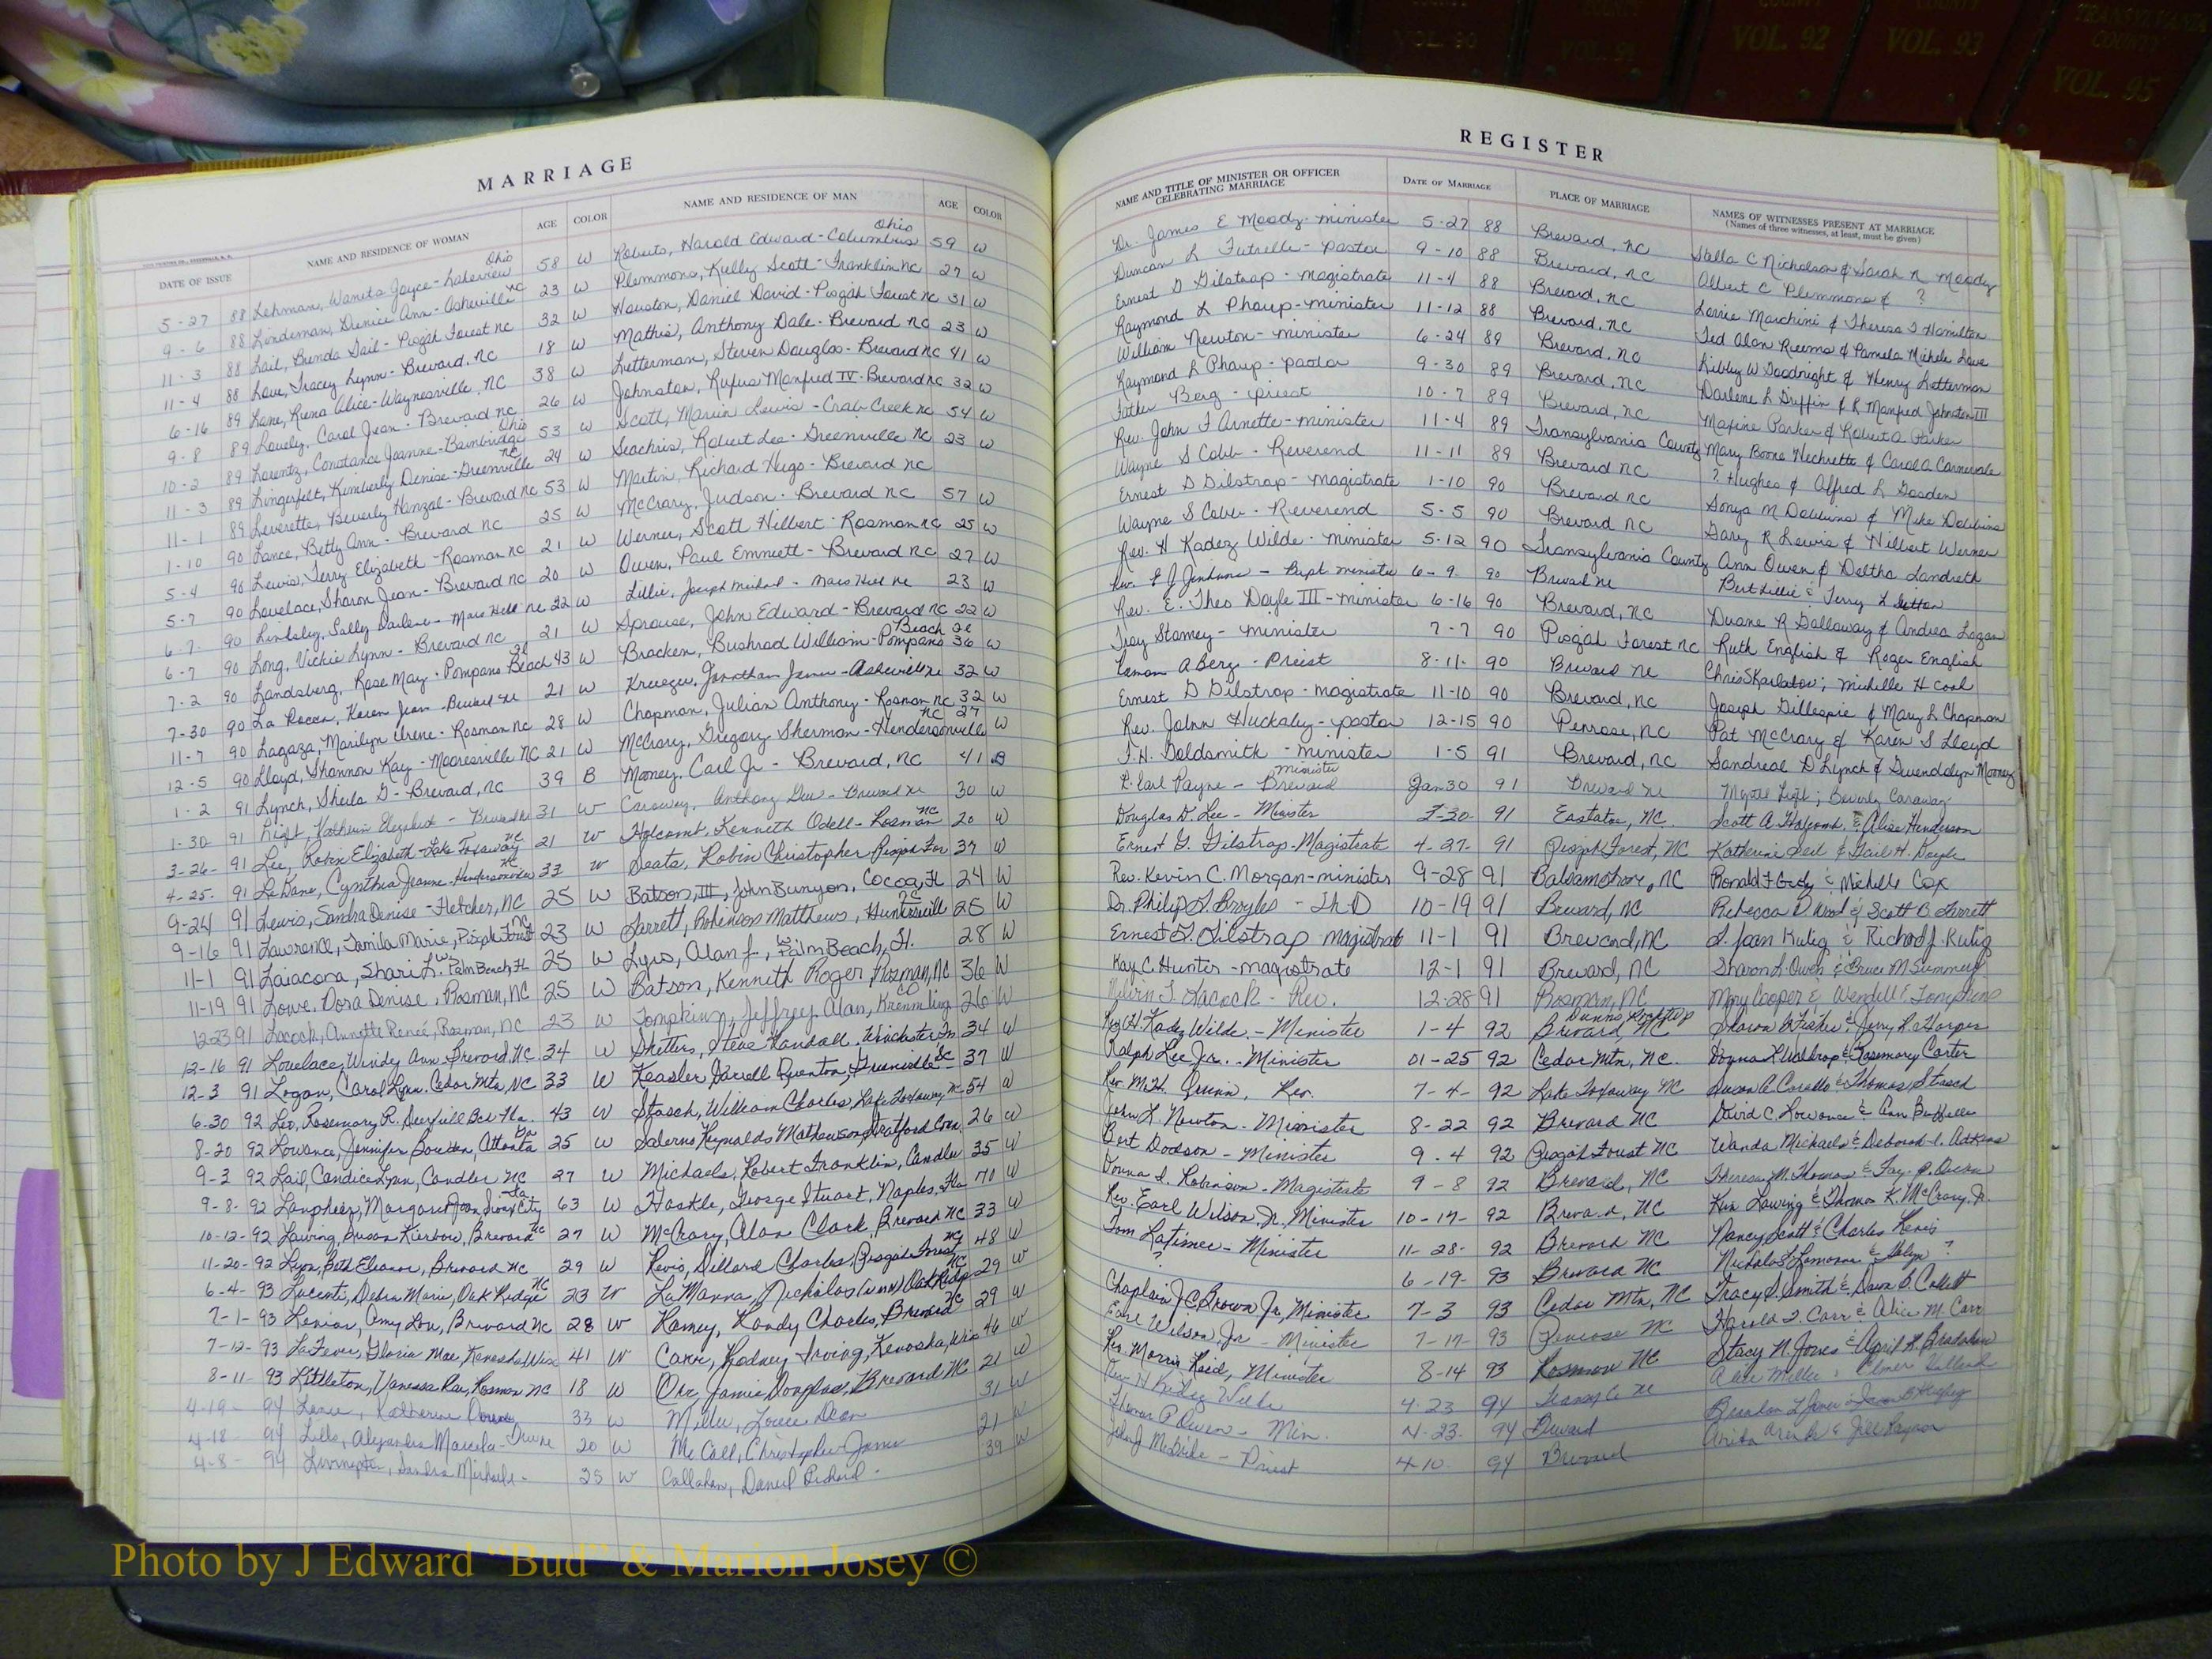 COUNTY
VOL. 90
COUNTY
VOL. 91
COUNTY
VOL. 92
COUNTY
VOL. 93
TRANSYLVANIA
COUNTY
VOL. 95
MARRIAGE
DATE OF ISSUE NAME AND RESIDENCE OF WOMAN AGE COLOR NAME AND RESIDENCE OF MAN AGE COLOR
5-27 88 Lehman, Wanita Joyce - Lakeview Ohio 58 W Roberts, Harold Edward - Columbus Ohio 59 W
9-6 88 Lindeman, Denice Ann - Asheville NC 23 W Plemmons, Kelly Scott - Franklin NC 27 W
11-3 88 Lail, Brenda Gail - Pisgah Forest NC 32 W Houston, Daniel David - Pisgah Forest NC 31 W
11-4 88 Love, Tracey Lynn - Brevard, NC 18 W Mathis, Anthony Dale - Brevard NC 23 W
6-16 89 Lane, Rena Alice - Waynesville, NC 38 W Letterman, Steven Douglas - Brevard NC 41 W
9-8 89 Lovely, Carol Jean - Brevard NC 26 W Johnston, Rufus Manfred IV - Brevard NC 32 W
10-2 89 Lorentz, Constance Joanne - Bainbridge Ohio 53 W Scott, Marvin Lewis - Crab Creek NC 54 W
11-3 89 Lingerfelt, Kimberly Denise - Greenville NC 24 W Seachris, Robert Lee - Greenville NC 23 W
11-1 89 Leverette, Beverly Hanzal - Brevard NC 53 W Martin, Richard Hugo - Brevard NC
1-10 90 Lance, Betty Ann - Brevard NC 25 W McCrary, Judson - Brevard NC 57 W
5-4 90 Lewis, Terry Elizabeth - Rosman NC 21 W Werner, Scott Hilbert - Rosman NC 25 W
5-7 90 Lovelace, Sharon Jean - Brevard NC 20 W Owen, Paul Emmett - Brevard NC 27 W
6-7 90 Lindsley, Sally Darlene - Mars Hill NC 22 W Lillie, Joseph Michael - Mars Hill NC 23 W
6-7 90 Long, Vickie Lynn - Brevard NC 21 W Sprouse, John Edward - Brevard NC 22 W
7-2 90 Landsberg, Rose May - Pompano Beach 43 W Bracken, Bushrod William - Pompano Beach 36 W
7-30 90 La Rocca, Karen Jean - Brevard NC 21 W Krueger, Jonathan James - Asheville NC 32 W
11-7 90 Lagaza, Marilyn Irene - Rosman NC 28 W Chapman, Julian Anthony - Rosman NC 32 W
12-5 90 Lloyd, Shannon Kay - Mooresville NC 21 W McCrary, Gregory Sherman - Hendersonville NC 27 W
1-2 91 Lynch, Sheila G - Brevard, NC 39 B Mooney, Carl Jr - Brevard, NC 41 B
1-30 91 Light, Katherin Elizabeth - Brevard NC 31 W Caraway, Anthony Lee - Brevard NC 30 W
3-26- 91 Lee, Robin Elizabeth - Lake Toxaway NC 21 W Holcomb, Kenneth Odell - Rosman NC 20 W
4-25- 91 LeBane, Cynthia Jeanne - Hendersonville NC 33 W Seats, Robin Christopher Pisgah For 37 W
9-24 91 Lewis, Sandra Denise - Fletcher, NC 25 W Batson, III, John Bunyon, Cocoa, FL 24 W
9-16 91 Lawrence, Tamila Marie, Pisgah Forest NC 23 W Jarrett, Robinson Matthews, Huntersvill NC 25 W
11-1 91 Laiacona, Shari L. W. Palm Beach, FL 25 W Lyis, Alan J., W. Palm Beach, Fl. 28 W
11-19 91 Lowe, Dora Denise, Rosman, NC 25 W Batson, Kenneth Roger Rosman, NC 36 W
12-23 91 Lacock, Annette Reneé, Rosman, NC 23 W Tompkins, Jeffrey Alan, Kremmling CO 26 W
12-16 91 Lovelace, Windy Ann Brevard, NC 34 W Shetters, Steve Randall, Winchester Tn 34 W
12-3 91 Logan, Carol Lynn, Cedar Mtn, NC 33 W Keasler, Jarrell Quenton, Greenville SC 37 W
6-30 92 Leo, Rosemary R. Deerfield Bch Fla. 43 W Stasch, William Charles, Lake Toxaway NC 54 W
8-20 92 Lowance, Jennifer Boulton, Atlanta Ga 25 W Salerno Reynolds Mathewson Stratford Conn. 26 W
9-3 92 Lail, Candice Lynn, Candler NC 27 W Michaels, Robert Franklin, Candler 35 W
9-8- 92 Lanphier, Margaret Joan, Sioux City Ia 63 W Haskle, George Stuart, Naples, Fla 70 W
10-12-92 Lawing, Susan Kierbow, Brevard NC 27 W McCrary, Alan Clark, Brevard NC 33 W
11-20-92 Lyon, Beth Eleanor, Brevard NC 29 W Revis, Dillard Charles, Pisgah Forest NC 48 W
6-4- 93 Lucenti, Debra Marie, Oak Ridge NC 23 W LaManna, Nicholas (NMN) Oak Ridge NC 29 W
7-1-93 Lanier, Amy Lou, Brevard NC 28 W Ramey, Randy Charles, Brevard NC 29 W
7-12-93 LaFever, Gloria Mae, Kenosha Wis 41 W Carr, Rodney Irving, Kenosha, Wis 46 W
8-11- 93 Littleton, Vanessa Rae, Rosman NC 18 W Orr, Jamie Douglas, Brevard NC 21 W
4-19- 94 Lance, Katherine 33 W Miller, Loree Dean 31 W
4-18 94 Lills, Alejandra Marcela - 20 W McCall, Christopher James 21 W
4-8- 94 Livingston, Sandra Michaels - 35 W Callahan, Daniel Richard - 39 W
REGISTER
NAME AND TITLE OF MINISTER OR OFFICER CELEBRATING MARRIAGE DATE OF MARRIAGE PLACE OF MARRIAGE NAMES OF WITNESSES PRESENT AT MARRIAGE
(Names of three witnesses, at least, must be given)
Dr. James E Moody - minister 5-27 88 Brevard, NC Stella C Nicholson & Sarah N Moody
Duncan L Futrelle - pastor 9-10 88 Brevard, NC Albert C Plemmons & ?
Ernest D Gilstrap - magistrate 11-4 88 Brevard, NC Lorrie Marchini & Theresa T Hamilton
Raymond L Phaup - minister 11-12 88 Brevard, NC Ted Alan Reems & Pamela Michele Love
William Newton - minister 6-24 89 Brevard, NC Kibley W Goodnight & Henry Letterman
Raymond L Phaup - pastor 9-30 89 Brevard, NC Darlene L Griffin & R Manfred Johnston III
Father Berg - priest 10-7 89 Brevard, NC Maxine Parker & Robert A Parker
Rev. John F Arnette - minister 11-4 89 Transylvania County Mary Boone Hechrette & Carol A Carnevale
Wayne S Cobb - Reverend 11-11 89 Brevard NC ? Hughes & Alfred L Gosden
Ernest D Gilstrap - magistrate 1-10 90 Brevard NC Sonya M Dobbins & Mike Dobbins
Wayne S Cobb - Reverend 5-5 90 Brevard NC Gary R Lewis & Hilbert Werner
Rev. H Kadez Wilde - minister 5-12 90 Transylvania County Ann Owen & Deltha Landreth
Rev. F J Jenkins - Bapt. minister 6-9 90 Brevard NC Bert Lillie & Terry L Sitton
Rev. E. Theo Doyle III - minister 6-16 90 Brevard, NC Duane R Galloway & Andrea Logan
Troy Stamey - minister 7-7 90 Pisgah Forest NC Ruth English & Roger English
A Berg - Preist 8-11- 90 Brevard NC Chris ; Michelle H Cool
Ernest D Gilstrap - magistrate 11-10 90 Brevard, NC Joseph Gillespie & Mary L Chapman
Rev. John Huckaby - pastor 12-15 90 Penrose, NC Pat McCrary & Karen S Lloyd
F. H. Goldsmith - minister 1-5 91 Brevard, NC Sandreal D Lynch & Gwendolyn Mooney
R. Earl Payne - Brevard minister Jan 30 91 Brevard NC Myrtle Light; Beverly Caraway
Douglas D. Lee - Minister 3-30- 91 Eastatoe, NC. Scott A. Holcomb & Alisa Henderson
Ernest G. Gilstrap - Magistrate 4-27- 91 Pisgah Forest, NC Katherine Neil & Gail H. Doyle
Rev. Kevin C. Morgan - minister 9-28 91 Balsam Grove, NC Ronald F Cody & Michelle Cox
Dr. Philip L Broyles - Th D 10-19 91 Brevard, NC Rebecca D Wood & Scott B. Jarrett
Ernest G. Gilstrap magistrat 11-1 91 Brevard, NC S. Joan Kulig & Richard J. Kulig
Kay C. Hunter - magistrate 12-1 91 Brevard, NC Sharon L. Owen & Bruce M Summey
Melvin T. Lacock - Rev. 12-28 91 Rosman, NC Mary Cooper & Wendell E Tompkins
Rev. H. Kadez Wilde - Minister 1-4 92 Brevard, NC Dunns Rock Twp Sharon B Fisher & Jerry R. Harper
Ralph Lee Jr. - Minister 01-25 92 Cedar Mtn, NC. Donna K Waldrop & Rosemary Carter
Rev. M. H. Gunn, Rev. 7-4- 92 Lake Toxaway NC Susan A Corallo & Thomas Stasch
John L Newton - Minister 8-22 92 Brevard NC David C. Lowance & Ann Buffelli
Bert Dodson - Minister 9-4 92 Pisgah Forest NC Wanda Michaels & Deborah L. Adkins
Donna L. Robinson - Magistrate 9-8 92 Brevard, NC Theresa M. Thomas & Fay P. Owen
Rev. Earl Wilson, Jr, Minister 10-17- 92 Brevard, NC Ken Lawing & Thomas K. McCrary, Jr.
Tom Latimer - Minister 11-28- 92 Brevard NC Nancy Scott & Charles Revis
? 6-19- 93 Brevard NC Nicholas Lamanna & ?
Chaplain J C Brown Jr, Minister 7-3 93 Cedar Mtn, NC Tracy S. Smith & Dawn B. Collett
Earl Wilson, Jr - Minister 7-17- 93 Penrose NC Harold I. Carr & Alice M. Carr
Rev. Morris Reid, Minister 8-14 93 Rosman NC Stacy N. Jones & April K. Bradshaw
Rev H Kadez Wilde 4-23 94 NC Alice Miller &
Thomas P Owen - Min. 4-23- 94 Brevard
John J McBride - Priest 4-10- 94 Brevard
Photo by J Edward "Bud" & Marion Josey ©